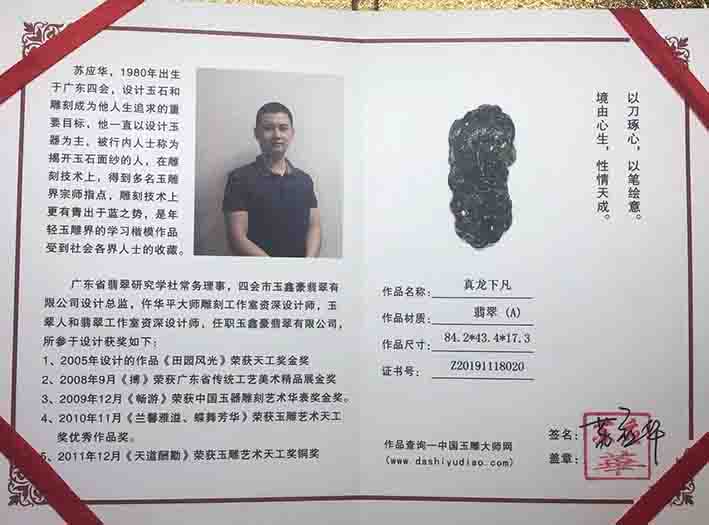 苏应华，1980年出生
于广东四会，设计玉石和
雕刻成为他人生追求的重
要目标，他一直以设计玉
器为主，被行内人士称为
揭开玉石面纱的人，在雕
刻技术上，得到多名玉雕
界宗师指点，雕刻技术上
更有青出于蓝之势，是年
轻玉雕界的学习楷模作品
受到社会各界人士的收藏。
广东省翡翠研究学社常务理事，四会市玉鑫豪翡翠有
限公司设计总监，仵华平大师雕刻工作室资深设计师，玉
翠人和翡翠工作室资深设计师，任职玉鑫豪翡翠有限公司，
所参于设计获奖如下：
1、2005年设计的作品《田园风光》荣获天工奖金奖
2、2008年9月《博》荣获广东省传统工艺美术精品展金奖
3、2009年12月《畅游》荣获中国玉器雕刻艺术华表奖金奖。
4、2010年11月《兰馨雅溢、蝶舞芳华》荣获玉雕艺术天工
奖优秀作品奖。
5、2011年12月《天道酬勤》荣获玉雕艺术天工奖铜奖
以刀琢心，以笔绘意。
境由心生，性情天成。
作品名称：真龙下凡
作品材质：翡翠（A）
作品尺寸：84.2*43.4*17.3
证书号：Z20191118020
作品查询一中国玉雕大师网
(www.dashiyudiao.com)
签名：苏应华
盖章：